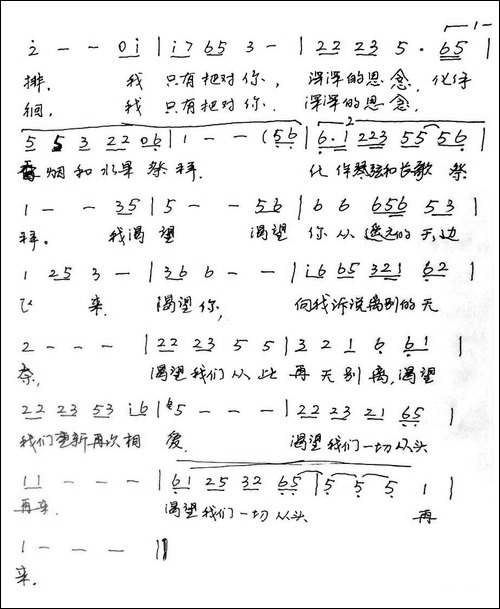 2̇ - - 0i | i7 65 3 - | 22 23 5 · 65
排. 我 只有把对你, 深深的思念, 化作
徊, 我 只有把对你. 深深的思念,
5 5 3 22 06 | 1 - - (56 | 6·1 223 55 56 |
香烟和水果祭拜. 化作琴弦和长歌 祭
1 - - 35 | 5 - - 56 | 6 6 656 53 |
拜. 我渴望 渴望 你从遥远的天边
1 25 3 - | 36 6 - - | i6 65 321 62 |
飞 来. 渴望你, 向我诉说离别的无
2 - - - | 22 23 5 5 | 3 2 1 6 61 |
奈, 渴望我们从此再无别离, 渴望
22 23 53 i6 | 5 - - - | 22 23 21 65 |
我们重新再次相爱. 渴望我们一切从头
11 - - - | 61 25 32 65 | 5 5 5 1 |
再来. 渴望我们一切从头 再
1 - - - ||
来.